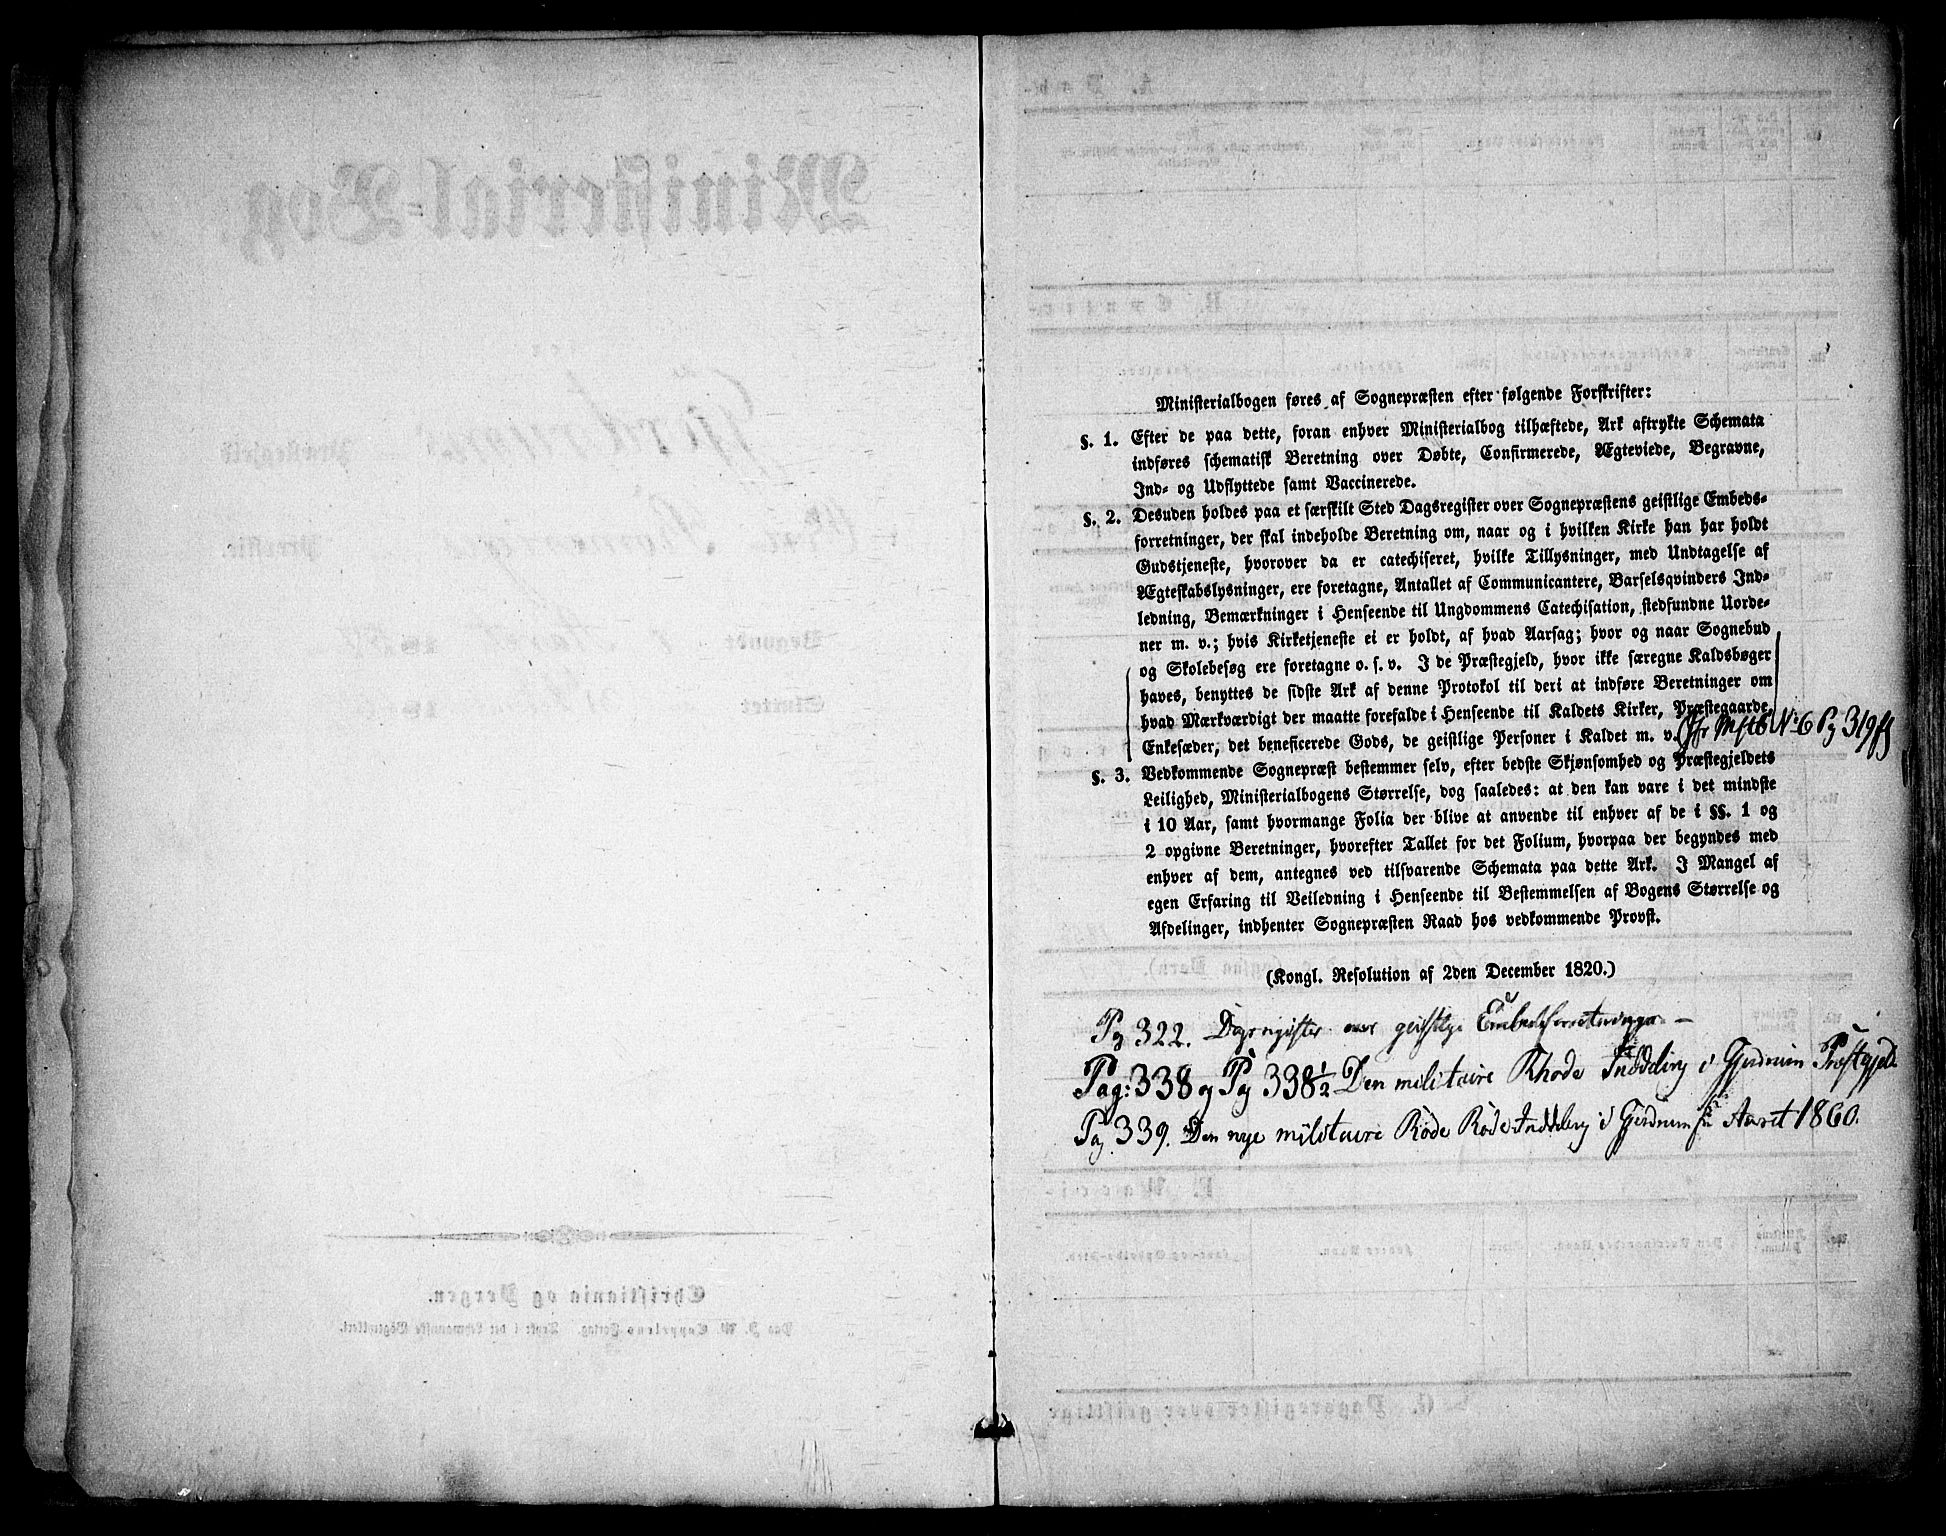 Ministerialbogen føres af Sognepræsten efter følgende Forskrifter:
§. 1. Efter de paa dette, foran enhver Ministerialbog tilhæftede, Ark aftrykte Schemata
indføres schematisk Beretning over Døbte, Confirmerede, Ægteviede, Begravne,
Ind- og Udflyttede samt Vaccinerede.
§. 2. Desuden holdes paa et særskilt Sted Dagsregister over Sognepræstens geistlige Embeds-
forretninger, der skal indeholde Beretning om, naar og i hvilken Kirke han har holdt
Gudstjeneste, hvorover da er catechiseret, hvilke Tillysninger, med Undtagelse af
Ægteskabslysninger, ere foretagne, Antallet af Communicantere, Barselsqvinders Ind-
ledning, Bemærkninger i Henseende til Ungdommens Catechisation, stedfundne Uorde-
ner m. v.; hvis Kirketjeneste ei er holdt, af hvad Aarsag; hvor og naar Sognebud
og Skolebesøg ere foretagne o. s. v. I de Præstegjeld, hvor ikke særegne Kaldsbøger
haves, benyttes de sidste Ark af denne Protokol til deri at indføre Beretninger om
hvad Mærkværdigt der maatte forefalde i Henseende til Kaldets Kirker, Præstegaarde,
Enkesæder, det beneficerede Gods, de geistlige Personer i Kaldet m. v. No 6 Pg 319
§. 3. Vedkommende Sognepræst bestemmer selv, efter bedste Skjønsomhed og Præstegjeldets
Leilighed, Ministerialbogens Størrelse, dog saaledes: at den kan vare i det mindste
i 10 Aar, samt hvormange Folia der blive at anvende til enhver af de i §§. 1 og
2 opgivne Beretninger, hvorefter Tallet for det Folium, hvorpaa der begyndes med
enhver af dem, antegnes ved tilsvarende Schemata paa dette Ark. I Mangel af
egen Erfaring til Veiledning i Henseende til Bestemmelsen af Bogens Størrelse og
Afdelinger, indhenter Sognepræsten Raad hos vedkommende Provst.
(Kongl. Resolution af 2den December 1820.)
Pg 322. Dagregister over geistlige Embedsforretninger —
Pag: 338 og Pg 338½ Den militaire Rhode Inddeling i Gjerdrum Præstgjeld
Pag 339. Den nye militaire Rode Rode Inddeling i Gjerdrum fra Aaret 1860.